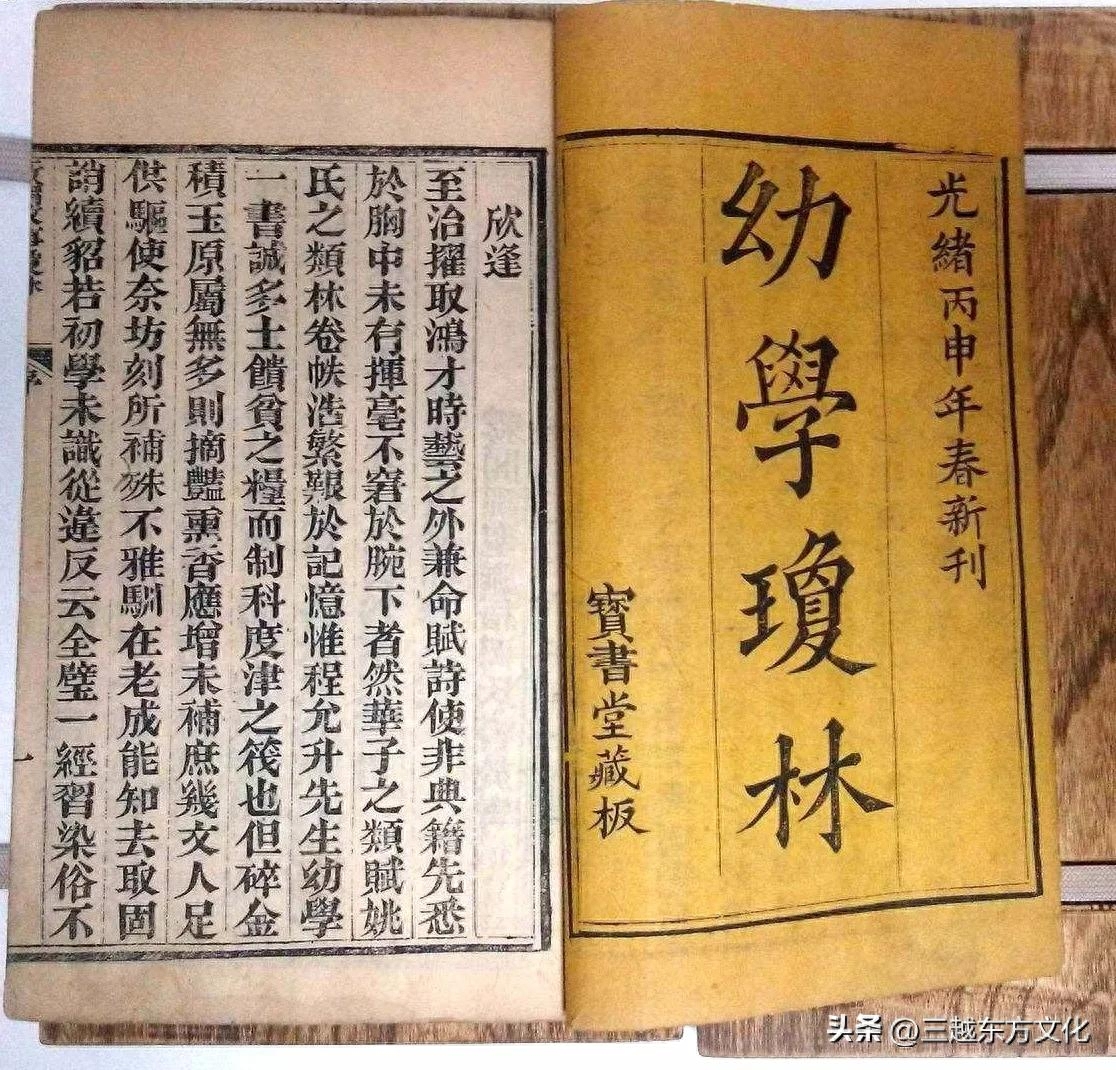 光緒丙申年春新刊
幼學瓊林
寶書堂藏板
欣逢
至治擢取鴻才時藝之外兼命賦詩使非典籍先悉
於胸中未有揮毫不窘於腕下者然華子之類賦姚
氏之類林卷帙浩繁艱於記憶惟程允升先生幼學
一書誠多士饋貧之糧而制科度津之筏也但碎金
積玉原屬無多則摘豔熏香應增未補庶幾文人足
供驅使奈坊刻所補殊不雅馴在老成能知去取固
誚續貂若初學未識從違反云全璧一經習染俗不
序
一
头条 @三越东方文化